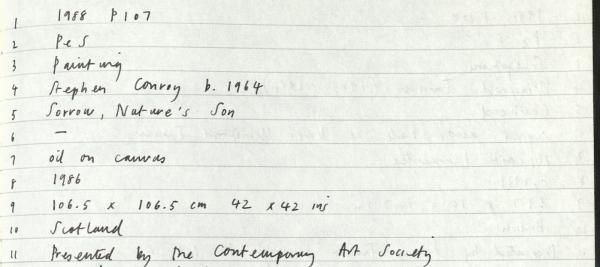 1 1988 P107
2 PeS
3 Painting
4 Stephen Conroy b. 1964
5 Sorrow, Nature's Son
6 —
7 oil on canvas
8 1986
9 106.5 x 106.5 cm 42 x 42 ins
10 Scotland
11 Presented by the Contemporary Art Society